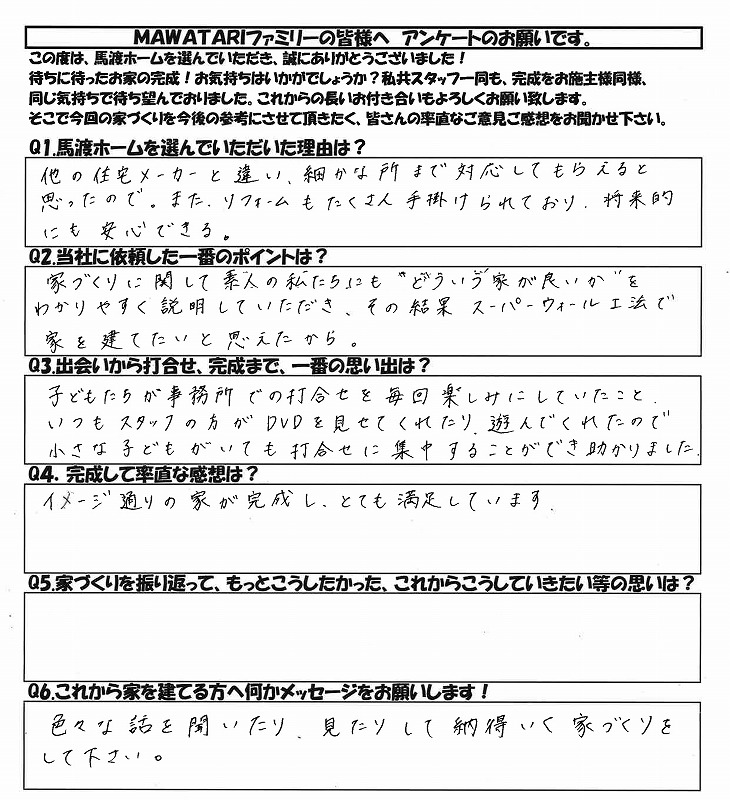 MAWATARIファミリーの皆様へ アンケートのお願いです。
この度は、馬渡ホームを選んでいただき、誠にありがとうございました！
待ちに待ったお家の完成！お気持ちはいかがでしょうか？私共スタッフ一同も、完成をお施主様同様、
同じ気持ちで待ち望んでおりました。これからの長いお付き合いもよろしくお願い致します。
そこで今回の家づくりを今後の参考にさせて頂きたく、皆さんの率直なご意見ご感想をお聞かせ下さい。
Q1.馬渡ホームを選んでいただいた理由は？
他の住宅メーカーと違い、細かな所まで対応してもらえると
思ったので。また、リフォームもたくさん手掛けられており、将来的
にも安心できる。
Q2.当社に依頼した一番のポイントは？
家づくりに関して素人の私たちにも“どういう家が良いか”を
わかりやすく説明していただき、その結果スーパーウォール工法で
家を建てたいと思えたから。
Q3.出会いから打合せ、完成まで、一番の思い出は？
子どもたちが事務所での打合せを毎回楽しみにしていたこと、
いつもスタッフの方がDVDを見せてくれたり、遊んでくれたので
小さな子どもがいても打合せに集中することができ助かりました。
Q4. 完成して率直な感想は？
イメージ通りの家が完成し、とても満足しています。
Q5.家づくりを振り返って、もっとこうしたかった、これからこうしていきたい等の思いは？
Q6.これから家を建てる方へ何かメッセージをお願いします！
色々な話を聞いたり、見たりして納得いく家づくりを
して下さい。